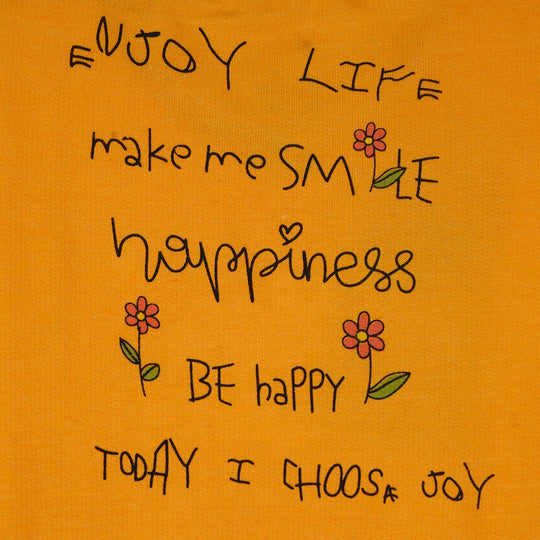 ENJOY LIFE
make me SMILE
happiness
BE happy
TODAY I CHOOSA JOY